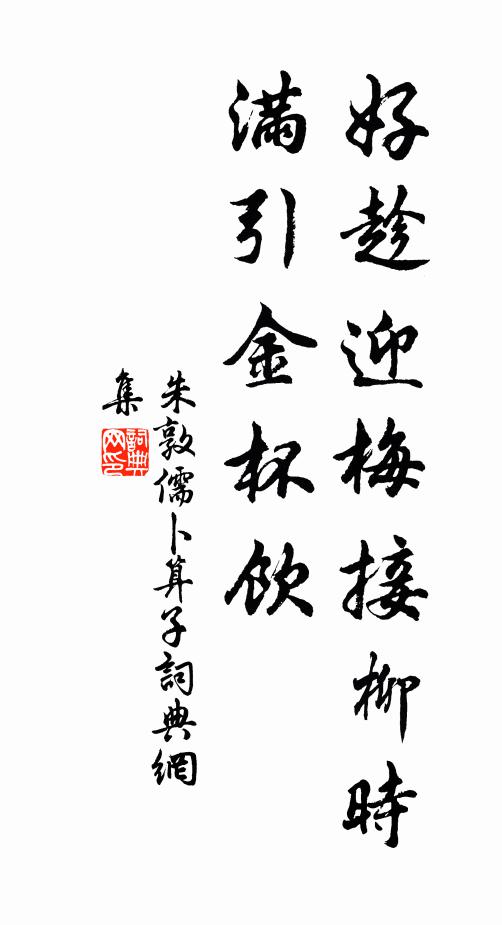 好趁迎梅接柳時
滿引金杯飲
朱敦儒卜算子詞典網
集
詞典
网印